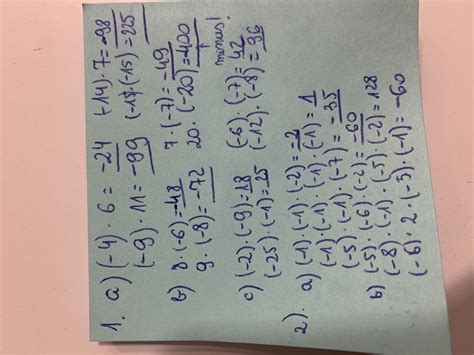 1. a) (-4) · 6 = -24 (-14) · 7 = -98
(-9) · 11 = -99 (-15) · (-15) = 225
b) 8 · (-6) = -48 7 · (-7) = -49
9 · (-8) = -72 20 · (-20) = 400
minus!
c) (-2) · (-9) = 18 (-6) · (-7) = 42
(-25) · (-1) = 25 (-12) · (-8) = 96
2). a) (-1) · (-1) · (-2) = -2
(-1) · (-1) · (-1) · (-1) = 1
(-5) · (-1) · (-7) = -35
b) (-5) · (-6) · (-2) = -60
(-8) · (-1) · (-5) · (-2) = 128
(-6) · 2 · (-5) · (-1) = -60